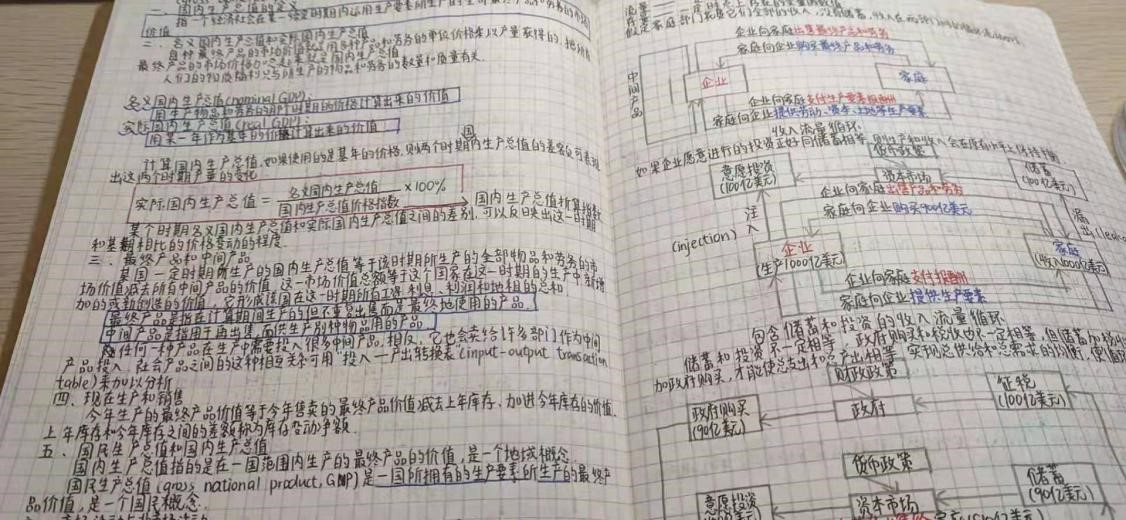 价值
二、名义国内生产总值和实际国内生产总值
最终产品的市场价值
人们的物质福利只与所生产的物品和劳务的数量和质量有关.
名义国内生产总值(nominal GDP):
用生产物品和劳务的那个时期的价格计算出来的价值
实际国内生产总值(real GDP):
用某一年作为基年的价格计算出来的价值
国
计算国内生产总值,如果使用的是基年的价格,则两个时期内生产总值的差额反可表现
出这两个时期产量的变化
实际国内生产总值 = 名义国内生产总值 / 国内生产总值价格指数 ×100%
国内生产总值折算指数
某个时期名义国内生产总值和实际国内生产总值之间的差别,可以反映出这一时期
和基期相比的价格变动的程度.
三、最终产品和中间产品
某国一定时期所生产的国内生产总值等于该时期所生产的全部物品和劳务的市
场价值减去所有中间产品的价值,这一市场价值总额等于这个国家在这一时期的生产中新增
加的或新创造的价值,它形成该国在这一时期所有工资、利息、利润和地租的总和
最终产品是指在计算期间生产的但不重复出售而是最终地使用的产品.
中间产品是指用于再出售而供生产别种物品用的产品.
任何一种产品在生产中需要投入很多中间产品,相反,它也会卖给许多部门作为中间
产品投入,社会产品之间的这种相互关系可用"投入—产出转换表(input-output transaction
table)来加以分析
四、现在生产和销售
今年生产的最终产品价值等于今年售卖的最终产品价值减去上年库存,加进今年库存的价值.
上年库存和今年库存之间的差额称为库存变动净额.
五、国民生产总值和国内生产总值
国内生产总值指的是在一国范围内生产的最终产品的价值,是一个地域概念.
国民生产总值(gross national product, GNP)是一国所拥有的生产要素所生产的最终产
品价值,是一个国民概念.
企业向家庭出售最终产品和劳务
家庭向企业购买最终产品和劳务
中间产品
企业
家庭
企业向家庭支付生产要素报酬
家庭向企业提供劳动、资本、土地等生产要素
收入流量循环
如果企业愿意进行的投资正好同储蓄相等,则生产和收入会在原有水平上保持平衡.
货币政策
意愿投资
(100亿美元)
资本市场
储蓄
(100亿美元)
企业向家庭出售产品和劳务
家庭向企业购买900亿美元
注入
(injection)
漏出
企业
(生产1000亿美元)
家庭
(收入1000亿美元)
企业向家庭支付报酬
家庭向企业提供生产要素
包含储蓄和投资的收入流量循环
储蓄和投资不一定相等,政府购买和税收也不一定相等,但储蓄加税收
加政府购买,才能使总支出和总产出相等,实现总供给和总需求的均衡,
财政政策
政府购买
(90亿美元)
政府
征税
(100亿美元)
货币政策
意愿投资
资本市场
储蓄
(90亿美元)